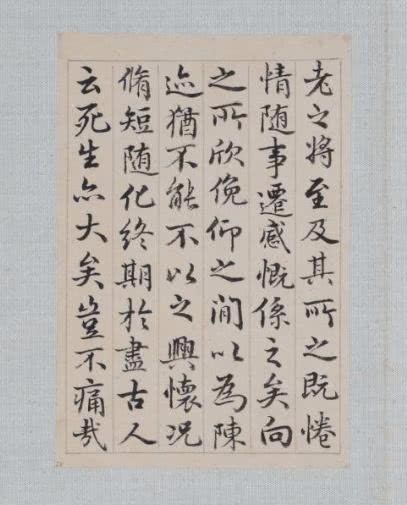 老之將至及其所之既惓
情随事遷感慨係之矣向
之所欣俛仰之間以為陳
迹猶不能不以之興懷况
脩短随化終期於盡古人
云死生亦大矣豈不痛哉